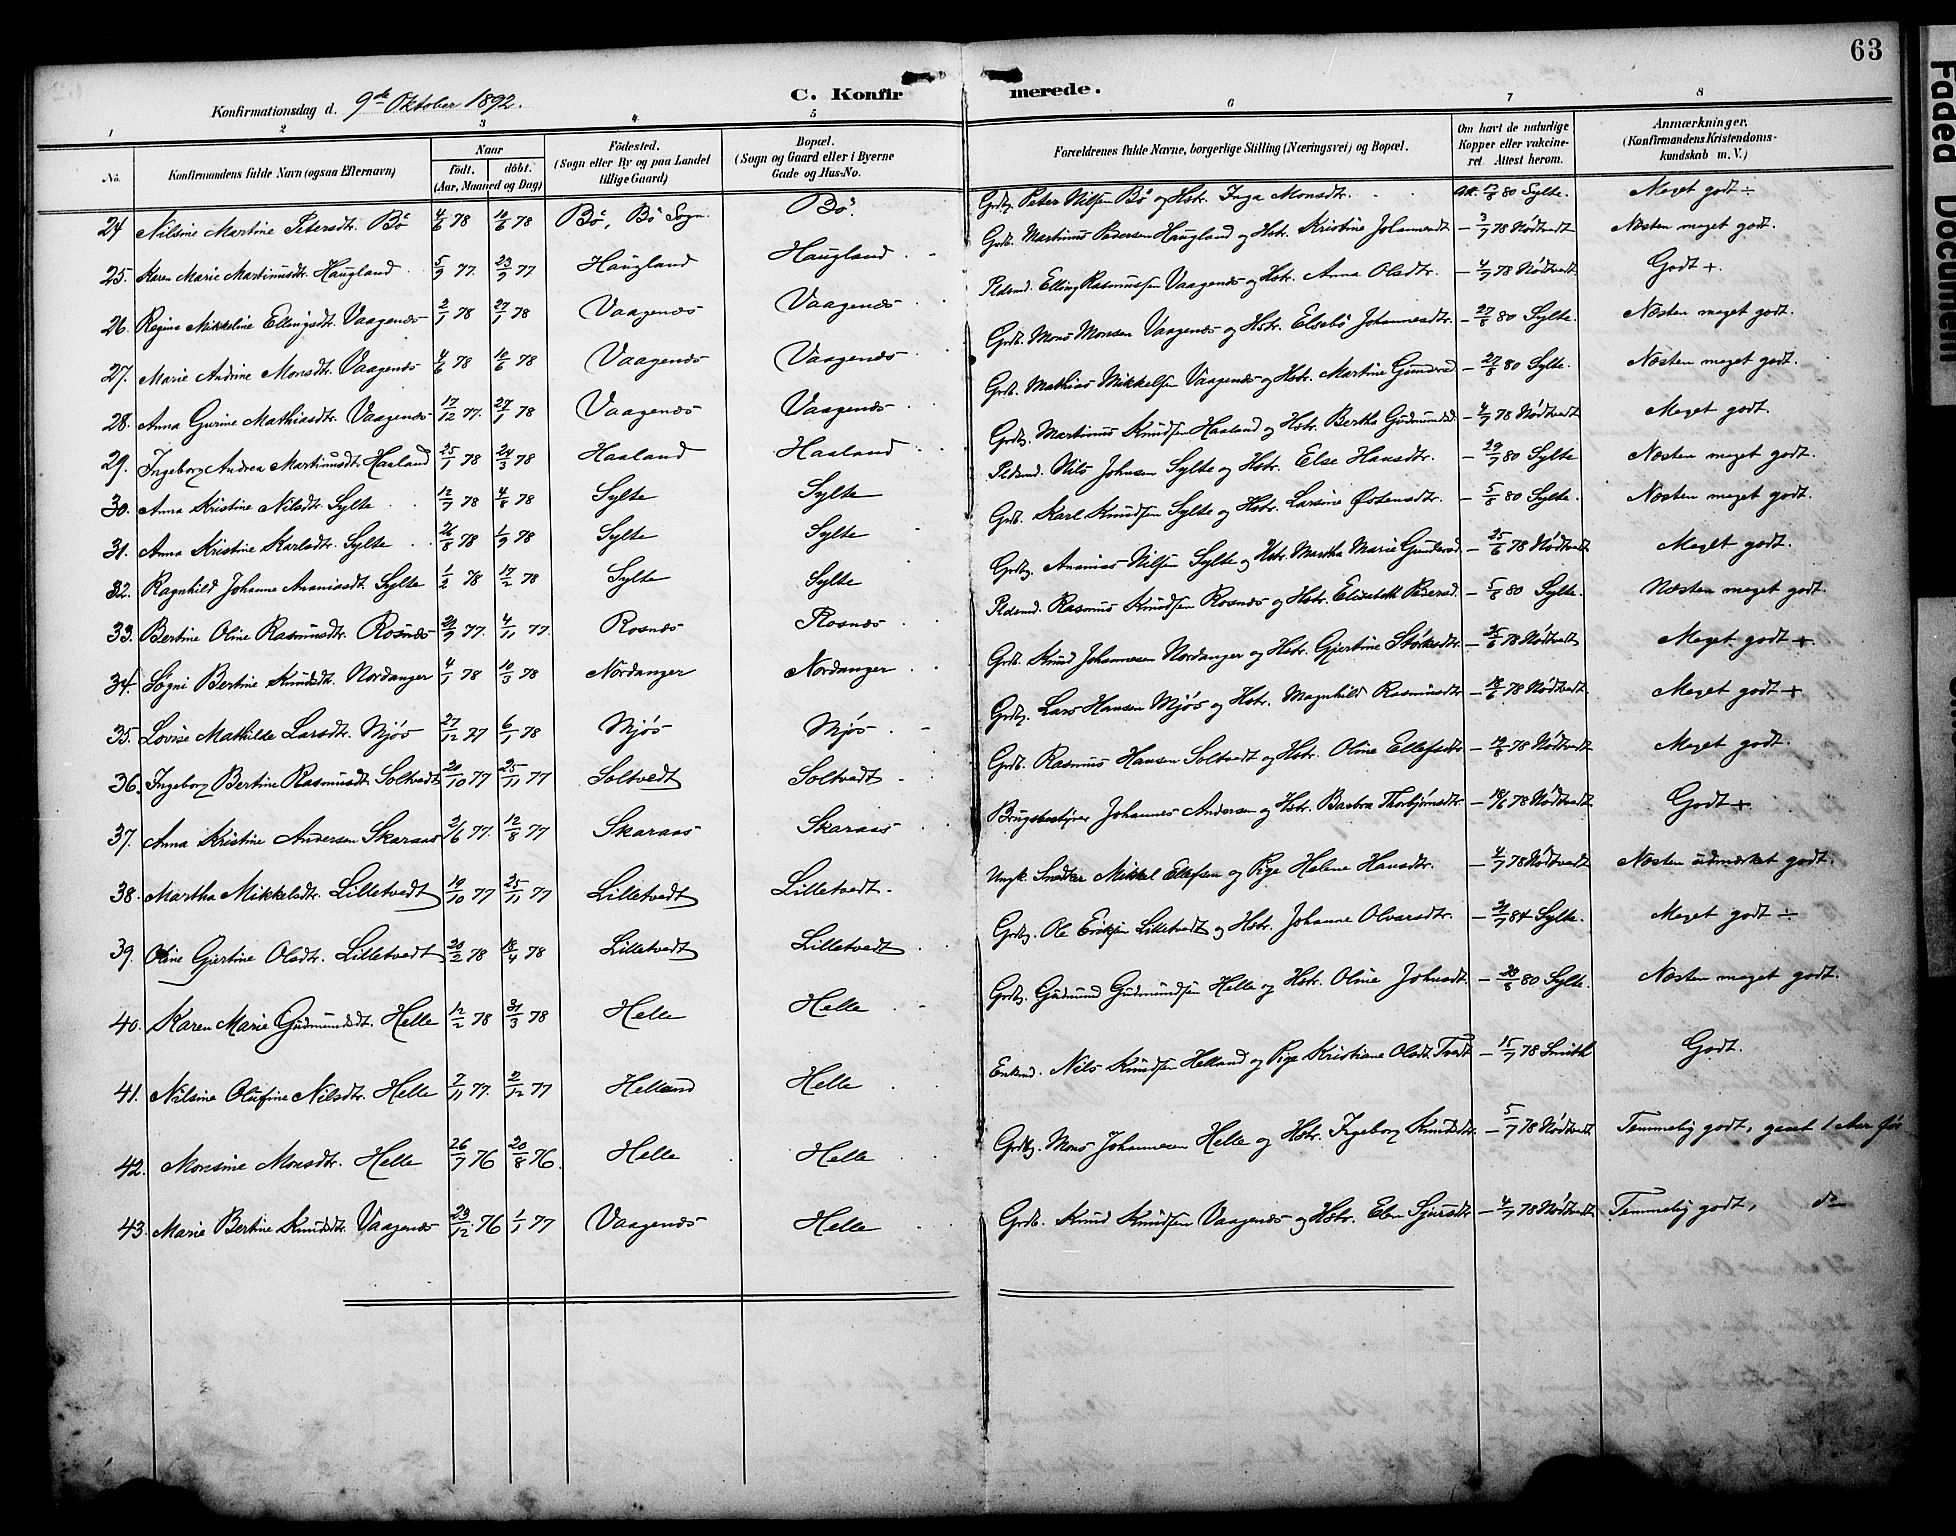 63
Konfirmationsdag d. 9de Oktober 1892. C. Konfirmerede.
1 2 3 4 5 6 7 8
No. Konfirmandens fulde Navn (ogsaa Efternavn) Naar født. døbt. (Aar, Maaned og Dag) Fødested. (Sogn eller By og paa Landet tillige Gaard) Bopæl. (Sogn og Gaard eller i Byerne Gade og Hus-No. Forældrenes fulde Navne, borgerlige Stilling (Næringsvei) og Bopæl. Om havt de naturlige Kopper eller vakcineret. Attest herom. Anmærkninger. (Konfirmandens Kristendomskundskab m. V.)
24 Nilsine Martine Petersdtr. Bö 4/6 78 10/6 78 Bö, Bö Sogn. Bö. Grdbg. Peter Nilsen Bö og Hstr. Inga Monsdtr. Att. 80 Sylte. Meget godt ÷
25. Karen Marie Martinusdtr. Haugland 5/9 77. 23/9 77 Haugland Haugland Grdb. Martinus Pedersen Haugland og Hstr. Kristine Johannesdt. – 3/7 78 Nödtvedt Næsten meget godt.
26. Regine Mikkeline Ellingsdtr. Vaagenæs 2/1 78 27/1 78 Vaagenæs Vaagenæs Pldsmd. Elling Rasmussen Vaagenæs og Hstr. Anna Olsdtr. – 4/7 78 Nödtvedt Godt +.
27. Marie Andrine Monsdtr. Vaagenæs 4/6 78 10/6 78 Vaagenæs Vaagenæs Grdb. Mons Monsen Vaagenæs og Hstr. Elsebö Johannesdtr. – 27/8 80 Sylte. Næsten meget godt.
28. Anna Gurine Mathiasdtr. Vaagenæs 17/12 77. 27/1 78 Vaagenæs Vaagenæs Grdb. Mathias Mikkelsen Vaagenæs og Hstr. Martine Gundersd. – 27/8 80 Sylte. Næsten meget godt.
29. Ingeborg Andrea Martinusdtr. Haaland 25/1 78 24/3 78 Haaland Haaland Grdbg. Martinus Knudsen Haaland og Hstr. Bertha Gudmundsd. – 4/7 78 Nödtvedt Meget godt.
30. Anna Kristine Nilsdtr. Sylte 12/7 78 4/8 78 Sylte Sylte Pldsmd. Nils Johnsen Sylte og Hstr. Else Hansdtr. – 29/7 80 Sylte Næsten meget godt.
31. Anna Kristine Karlsdtr. Sylte 26/8 78 1/9 78 Sylte Sylte Grdb. Karl Knudsen Sylte og Hstr. Larsine Østensdtr. – 5/8 80 Sylte. Næsten meget godt.
32. Ragnhild Johanne Ananiasdt. Sylte 1/2 78 17/2 78 Sylte Sylte Grdbg. Ananias Nilsen Sylte og Hstr. Martha Marie Gundersd. – 25/6 78 Nödtvedt Meget godt.
33. Bertine Oline Rasmusdtr. Rosnæs 77. 4/11 77. Rosnæs Rosnæs Pldsmd. Rasmus Knudsen Rosnæs og Hstr. Elisabeth Pedersd. – 5/8 80 Sylte. Næsten meget godt.
34. Sögni Bertine Knudsdt. Nordanger 4/1 78 10/3 78 Nordanger Nordanger Grdb. Knud Johannesen Nordanger og Hstr. Gjertine Störksdtr. – 25/6 78 Nödtvedt Meget godt +.
35. Lovise Mathilde Larsdtr. Mjös 27/12 77 6/1 78 Mjös Mjös Grdbg. Lars Hansen Mjös og Hstr. Magnhild Rasmusdtr – 18/6 78 Nödtvedt Meget godt +
36. Ingeborg Bertine Rasmusdt. Soltvedt 20/10 77 25/11 77 Soltvedt Soltvedt Grdb. Rasmus Hansen Soltvedt og Hstr. Oline Ellefsdtr – 78 Nödtvedt Meget godt.
37. Anna Kristine Andersen Skaraas 2/6 77. 12/8 77 Skaraas Skaraas Brugsbestyrer Johannes Andersen og Hstr. Barbra Thorbjörnsdtr – 18/6 78 Nödtvedt Godt +
38. Martha Mikkelsdtr. Lilletvedt 19/10 77 25/11 77 Lilletvedt Lilletvedt. Ungk. Snedker Mikkel Ellefsen og Pige Helene Hansdtr. – 4/7 78 Nödtvedt Næsten udmærket godt.
39. Oline Gjertine Olsdtr. Lilletvedt 20/2 78 18/4 78 Lilletvedt Lilletvedt Grdbg. Ole Eriksen Lilletvedt og Hstr. Johanne Olvarsdtr. – 84 Sylte. Meget godt ÷
40. Karen Marie Gudmundsdt. Helle 12/2 78 31/3 78 Helle Helle Grdbg. Gudmund Gudmundsen Helle og Hstr. Oline Johnsdt. – 28/8 80 Sylte. Næsten meget godt.
41. Nilsine Olufine Nilsdtr. Helle 7/11 77. 2/12 77 Helland Helle Enkmd. Nils Knudsen Helland og Pige Kristiane Olsdt. Tvedt – 15/7 78 Smith Godt.
42. Monsine Monsdtr. Helle 26/7 76 20/8 76. Helle Helle Grdbg. Mons Johannesen Helle og Hstr. Ingeborg Knudsdtr. – 5/7 78 Nödtvedt Temmelig godt, gaaet 1 Aar för
43. Marie Bertine Knudsdtr. Vaagenæs 23/12 76 1/1 77 Vaagenæs Helle Grdb. Knud Knudsen Vaagenæs og Hstr. Elen Sjursdtr – 4/7 78 Nödtvedt Temmelig godt, do
Faded Document